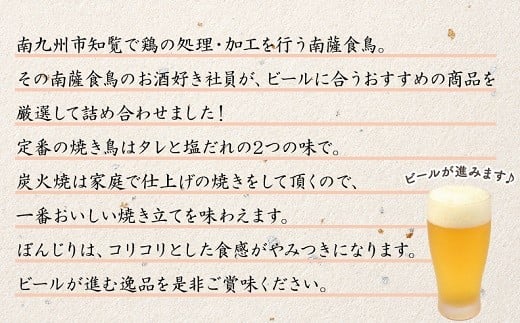 南九州市知覧で鶏の処理・加工を行う南薩食鳥。
その南薩食鳥のお酒好き社員が、ビールに合うおすすめの商品を
厳選して詰め合わせました！
定番の焼き鳥はタレと塩だれの2つの味で。
炭火焼は家庭で仕上げの焼きをして頂くので、
一番おいしい焼き立てを味わえます。
ぼんじりは、コリコリとした食感がやみつきになります。
ビールが進む逸品を是非ご賞味ください。
ビールが進みます♪